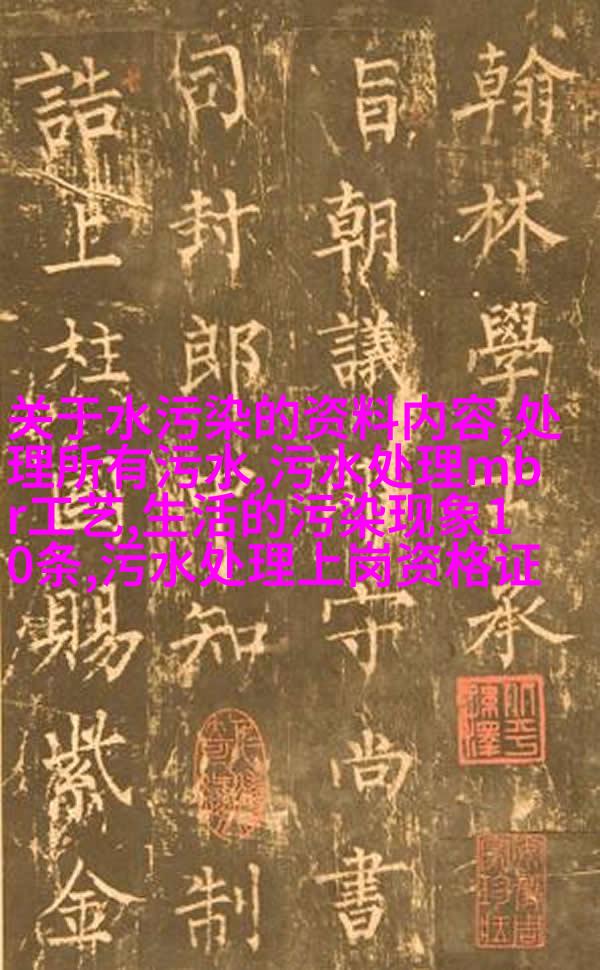 翰林學承
旨朝議守尚書
司封郎知制
誥上柱賜紫金
关于水污染的资料内容,处
理所有污水,污水处理mb
r工艺,生活的污染现象1
0条,污水处理上岗资格证